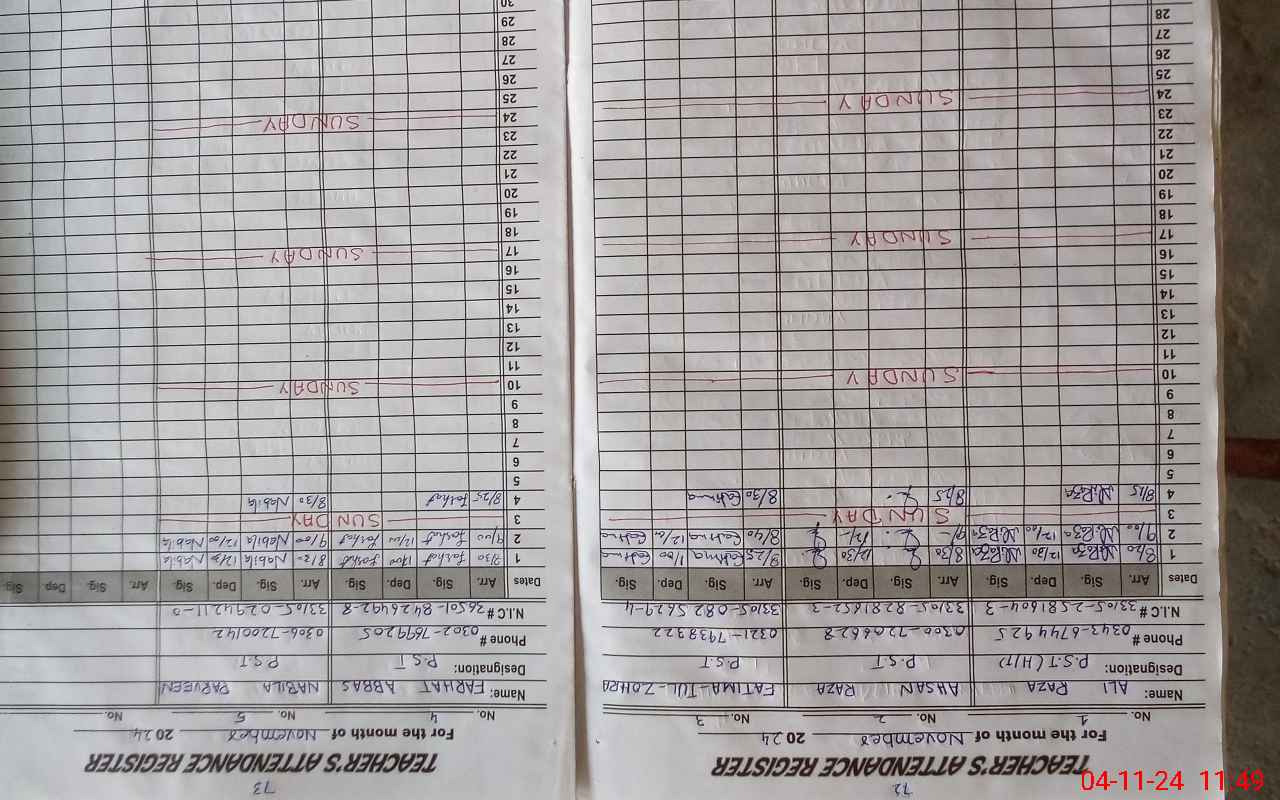 72
TEACHER'S ATTENDANCE REGISTER
For the month of November 2024
No. 1 No. 2 No. 3
Name: ALI RAZA AHSAN RAZA FATIMA-TUL-ZOHRA
Designation: P.S.T (H/T) P.S.T P.S.T
Phone # 0343-6744925 0300-7206628 0321-7938322
N.I.C # 33105-2581604-3 33105-8281652-3 33105-0825629-4
Dates Arr. Sig. Dep. Sig. Arr. Sig. Dep. Sig. Arr. Sig. Dep. Sig.
1 8/20 M.Raza 12/30 M.Raza 8/30 12/30 8/25 Fatima 1/00 Fatima
2 9/00 M.Raza 12/00 M.Raza 9/- 12/- 8/40 Fatima 12/00 Fatima
3 SUNDAY
4 8/15 M.Raza 8/25 8/30 Fatima
5
6
7
8
9
10 SUNDAY
11
12
13
14
15
16
17 SUNDAY
18
19
20
21
22
23
24 SUNDAY
25
26
27
28
73
TEACHER'S ATTENDANCE REGISTER
For the month of November 2024
No. 4 No. 5 No.
Name: FARHAT ABBAS NABILA PARVEEN
Designation: P.S.T P.S.T
Phone # 0302-7699205 0306-7200142
N.I.C # 36501-8426492-8 33105-0294211-0
Dates Arr. Sig. Dep. Sig. Arr. Sig. Dep. Sig. Arr. Sig. Dep. Sig.
1 8/30 Farhat 1200 Farhat 8/20 Nabila 12/30 Nabila
2 9/00 Farhat 12/00 Farhat 9/00 Nabila 12/00 Nabila
3 SUNDAY
4 8/25 Farhat 8/30 Nabila
5
6
7
8
9
10 SUNDAY
11
12
13
14
15
16
17 SUNDAY
18
19
20
21
22
23
24 SUNDAY
25
26
27
28
29
30
04-11-24 11:49